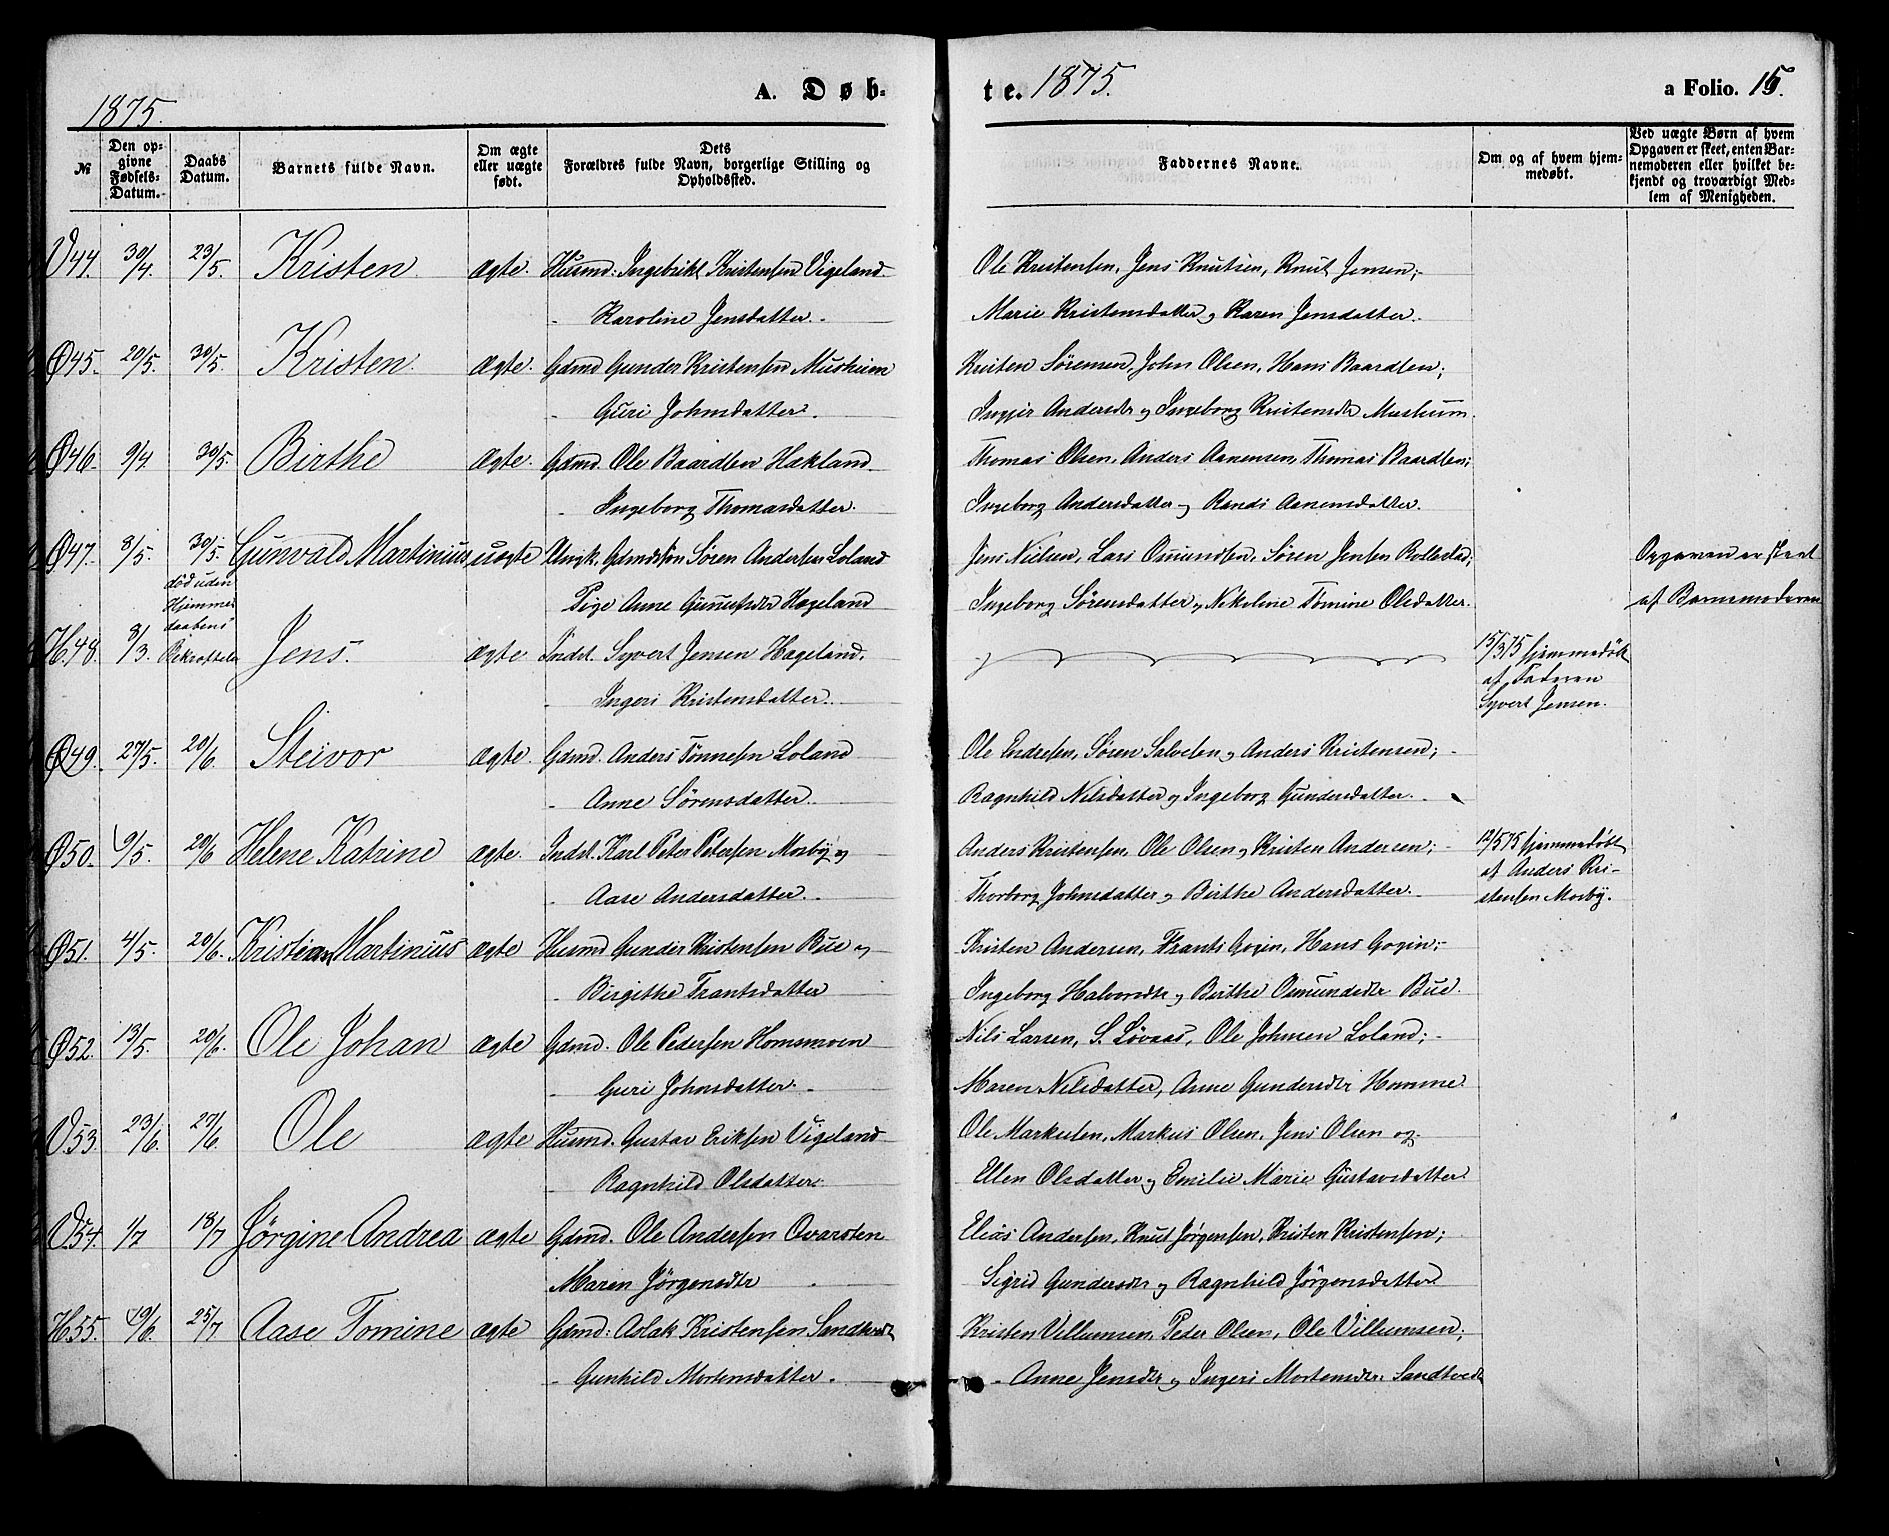 1875.
A. Døb-
te. 1875.
a Folio. 15.
№
Den opgivne Fødsels-Datum.
Daabs Datum.
Barnets fulde Navn.
Om ægte eller uægte født.
Dets Forældres fulde Navn, borgerlige Stilling og Opholdssted.
Faddernes Navne.
Om og af hvem hjemmedøbt.
Ved uægte Børn af hvem Opgaven er skeet, enten Barnemoderen eller hvilket bekjendt og troværdigt Medlem af Menigheden.
V44. 30/4. 23/5. Kristen ægte. Husmd: Ingebrikt Kristensen Vigeland Ole Kristensen, Jens Knutsen, Knut Jensen;
Karoline Jensdatter. Marie Kristensdatter og Karen Jensdatter.
Ø45. 20/5. 30/5. Kristen. ægte. Gdmd Gunder Kristensen Mushum Kristen Sørensen, John Olsen, Hans Baardsen;
Guri Johnsdatter. Andersdtr og Ingeborg Kristensdtr Mushum.
Ø46. 9/4. 30/5. Birthe ægte. Gdmd. Ole Baardsen Hækland Thomas Olsen, Anders Aanensen, Thomas Baardsen;
Ingeborg Thomasdatter. Ingeborg Andersdatter og Randi Aanensdatter.
Ø47. 8/5. 30/5. Gunvald Martinius uægte Ungk. Gdmdsøn Søren Andersen Loland Jens Nielsen, Lars Omundsen, Søren Jensen Rollestad; Opgaven er skeet
Pige Anne Hægeland Ingeborg Sørensdatter, Nikoline Tomine Olsdatter. af Barnemoderen
død uden
Hjemme-
daabens
Bekræftelse
H.48. 8/3. Jens. ægte Indst. Syvert Jensen Hægeland. 15/3 75 hjemmedøbt
af Faderen
Ingeri Kristensdatter. Syvert Jensen.
Ø49. 27/5. 20/6. Steivor ægte. Gdmd. Anders Tønnesen Loland Ole Endresen, Søren Salvesen og Anders Kristensen;
Anne Sørensdatter. Ragnhild Nilsdatter og Ingeborg Gundersdatter.
Ø50. 9/5. 20/6 Helene Katrine ægte. Indst. Karl Peter Petersen Mosby og Anders Kristensen, Ole Olsen og Kristen Andersen; 12/5 75 hjemmedøbt
af Anders Kri-
Aase Andersdatter. Thorborg Johnsdatter og Birthe Andersdatter. stensen Mosby.
Ø51. 4/5. 20/6. Kristian Martinius ægte Husmd Gunder Kristensen Bue og Kristen Andersen, Frants Gogin, Hans Gogin;
Birgithe Frantsdatter Ingeborg Halvorsdtr og Birthe Omundsdtr Bue.
Ø52. 13/5. 20/6. Ole Johan ægte Gdmd. Ole Pedersen Homsmoen Nils Larsen, S. Løvaas, Ole Johnsen Loland;
Guri Johnsdatter. Maren Nilsdatter, Anne Gundersdtr Homme.
V.53. 23/6. 27/6. Ole ægte Husmd. Gustav Eriksen Vigeland Ole Markusen, Markus Olsen, Jens Olsen og
Ragnhild Olsdatter. Ellen Olsdatter og Emilie Marie Gustavsdatter.
V.54. 1/7 18/7 Jørgine Andrea ægte Gdmd. Ole Andersen Ovarsten Elias Andersen, Knut Jørgensen, Kristen Kristensen;
Maren Jørgensdtr Sigrid Gundersdtr og Ragnhild Jørgensdatter.
H.55. 19/6. 25/7 Aase Tomine ægte Gdmd: Aslak Kristensen Sandtvedt Kristen Villumsen, Peder Olsen, Ole Villumsen;
Gunhild Mortensdatter. Anne Jensdtr og Ingeri Mortensdtr. Sandtvedt